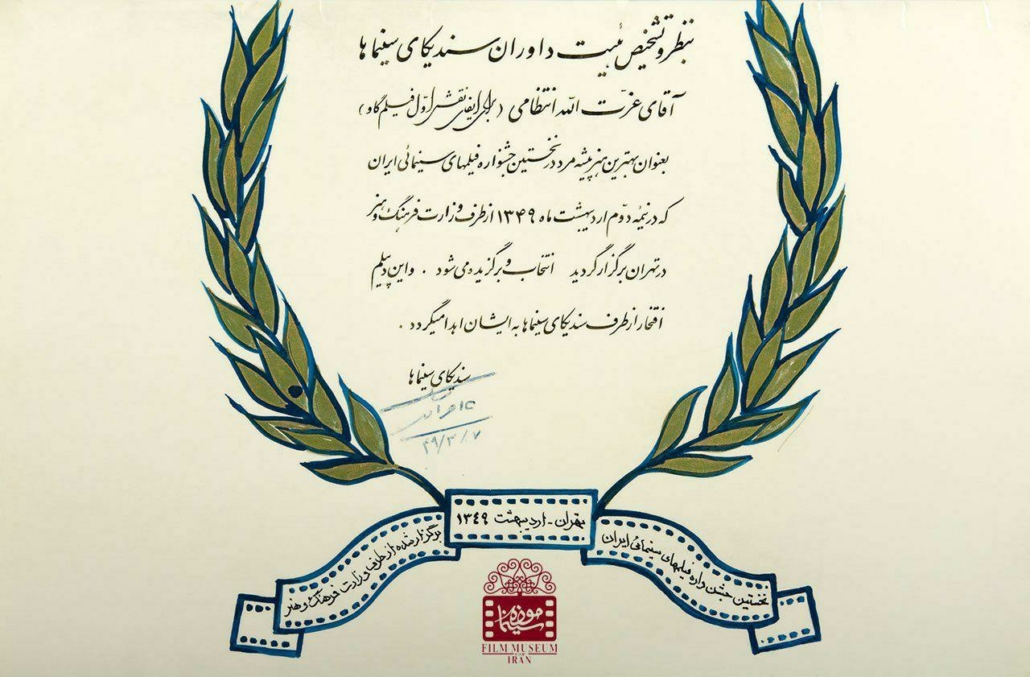 بنظر و تشخیص هیئت داوران سندیکای سینماها
آقای عزت الله انتظامی (برای ایفای نقش اول فیلم گاو)
بعنوان بهترین هنرپیشه مرد در نخستین جشنواره فیلمهای سینمائی ایران
که در نیمه دوّم اردیبهشت ماه ۱۳۴۹ از طرف وزارت فرهنگ و هنر
در تهران برگزار گردید انتخاب و برگزیده می شود . و این دیپلم
افتخار از طرف سندیکای سینماها به ایشان اهدا میگردد .
سندیکای سینماها
۴۹/۳/۷
تهران - اردیبهشت ۱۳٤۹
نخستین جشنواره فیلمهای سینمائی ایران
برگزار شده از طرف وزارت فرهنگ و هنر
موزه سینما
FILM MUSEUM
IRAN